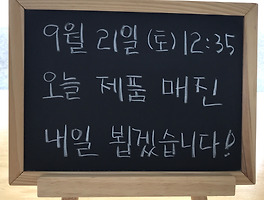 9월 21일 (토) 12:35
오늘 제품 매진
내일 뵙겠습니다!